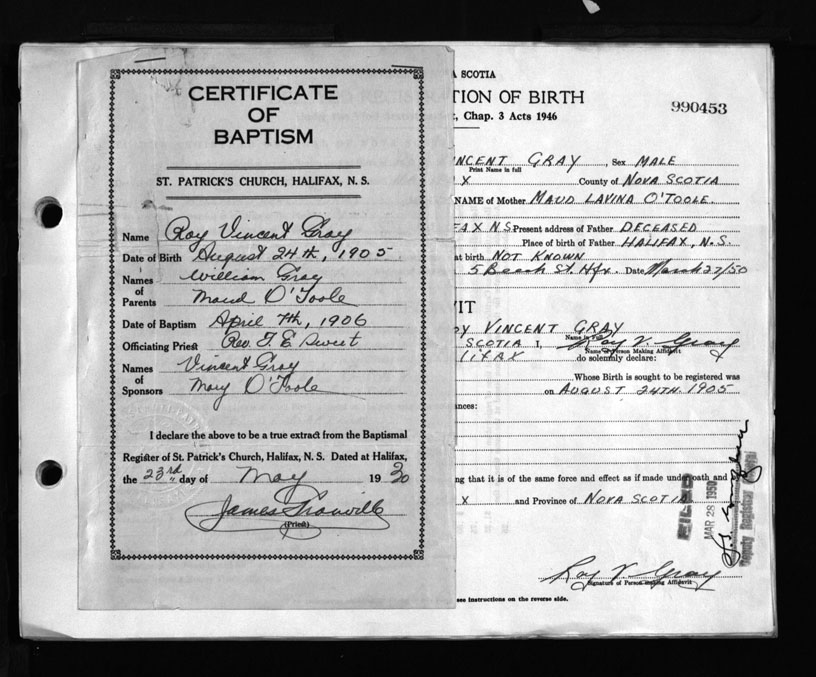 CERTIFICATE
OF
BAPTISM
ST. PATRICK'S CHURCH, HALIFAX, N. S.
Name Roy Vincent Gray
Date of Birth August 24th, 1905
Names William Gray
of
Parents Maud O'Toole
Date of Baptism April 7th, 1906
Officiating Priest Rev. F. E. Sweet
Names Vincent Gray
of
Sponsors Mary O'Toole
I declare the above to be a true extract from the Baptismal
Register of St. Patrick's Church, Halifax, N. S. Dated at Halifax,
the 23rd day of May 19
James
(Priest)
A SCOTIA
TION OF BIRTH
990453
Chap. 3 Acts 1946
NCENT GRAY, Sex MALE
Print Name in full
X County of NOVA SCOTIA
NAME of Mother MAUD LAVINA O'TOOLE.
FAX N.S. Present address of Father DECEASED
Place of birth of Father HALIFAX, N.S.
at birth NOT KNOWN
5 Beach St. Hfx. Date March 27/50
VIT
OY VINCENT GRAY
Name in Full
SCOTIA I, Roy V. Gray
Name of Person Making Affidavit
LIFAX do solemnly declare:
Whose Birth is sought to be registered was
on AUGUST 24TH. 1905
nces:
ing that it is of the same force and effect as if made under oath and
X and Province of NOVA SCOTIA
MAR 28 1950
Deputy Registrar
Roy V. Gray
Signature of Person making Affidavit
see instructions on the reverse side.